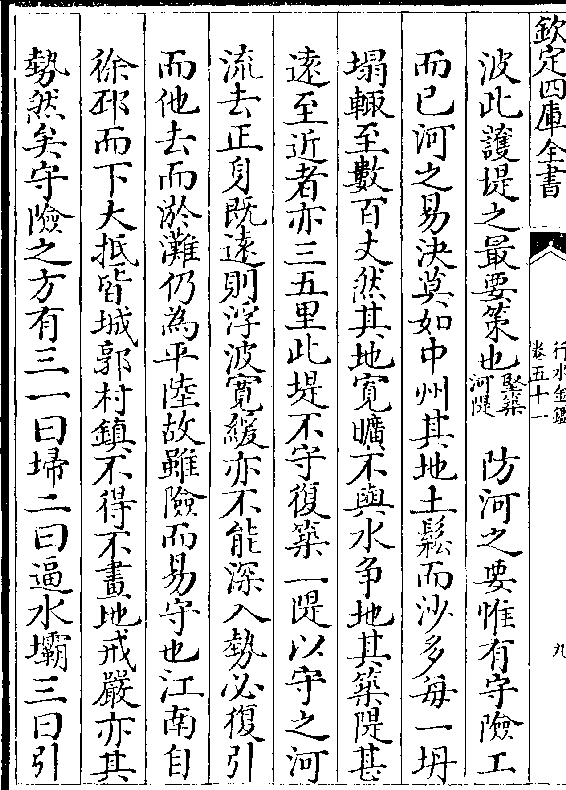 欽定四庫全書
行水金鑑
卷五十一
九
波此護堤之最要策也堅築河隄 防河之要惟有守險工
而已河之易決莫如中州其地土鬆而沙多每一坍
塌輙至數百丈然其地寛曠不與水争地其築隄甚
遠至近者亦三五里此堤不守復築一隄以守之河
流去正身既遠則浮波寛緩亦不能深入勢必復引
而他去而淤灘仍為平陸故雖險而易守也江南自
徐邳而下大抵皆城郭村鎮不得不畫地戒嚴亦其
勢然矣守險之方有三一曰埽二曰逼水壩三曰引